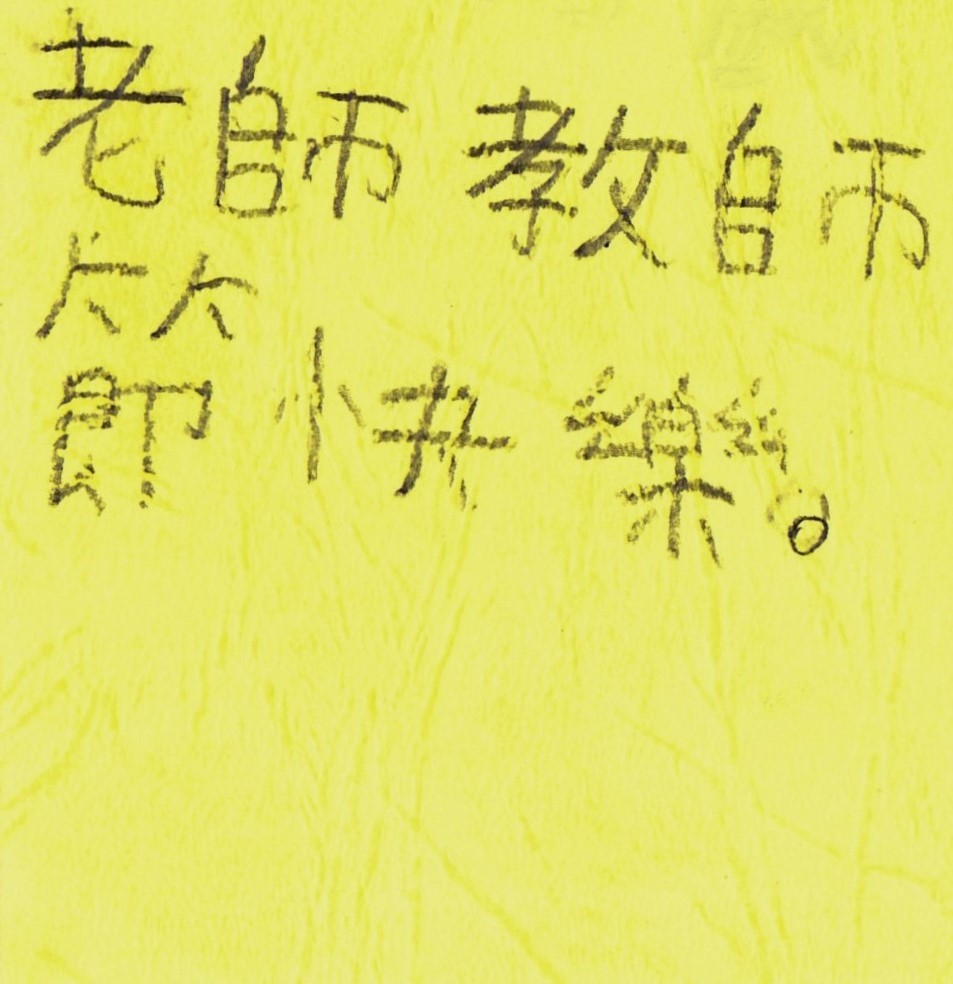 老師教師
節快樂。